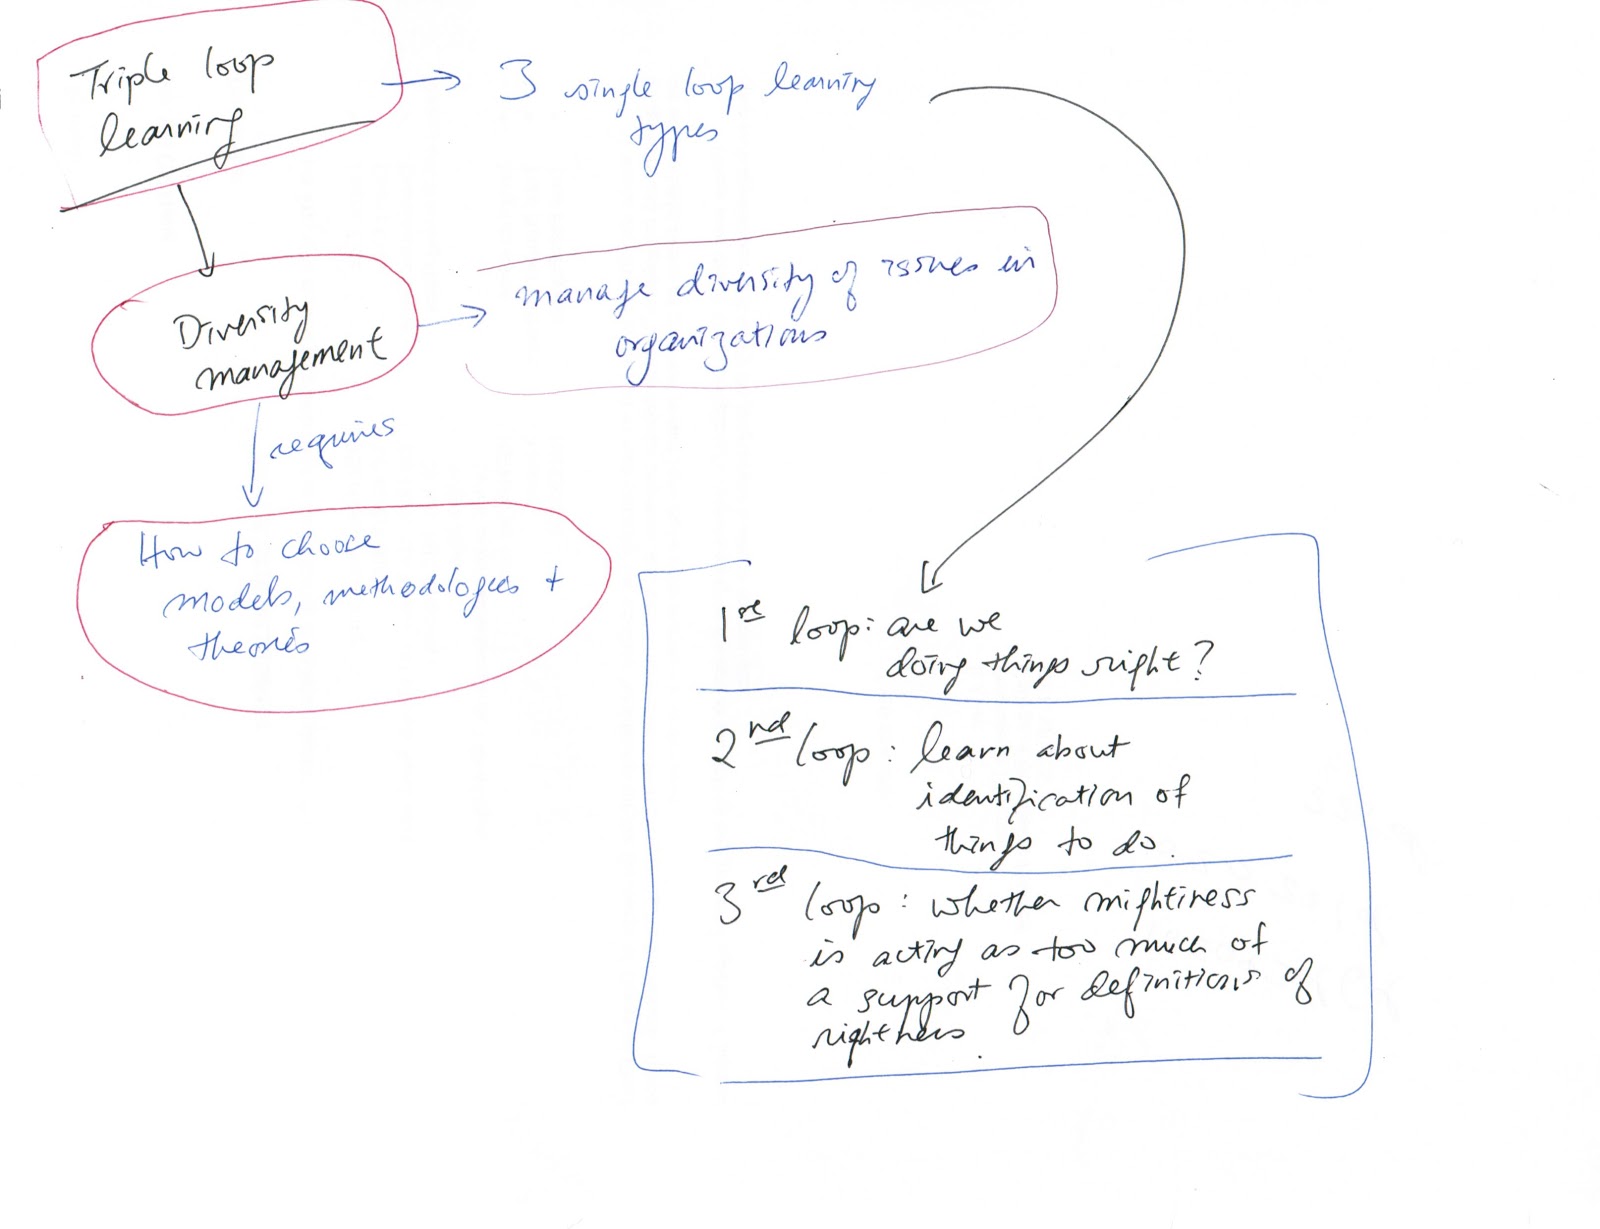 Triple loop
learning
3 single loop learning
types
Diversity
management
manage diversity of issues in
organizations
requires
How to choose
models, methodologies +
theories
1st loop: are we
doing things right?
2nd loop: learn about
identification of
things to do.
3rd loop: whether mightiness
is acting as too much of
a support for definitions of
rightness.